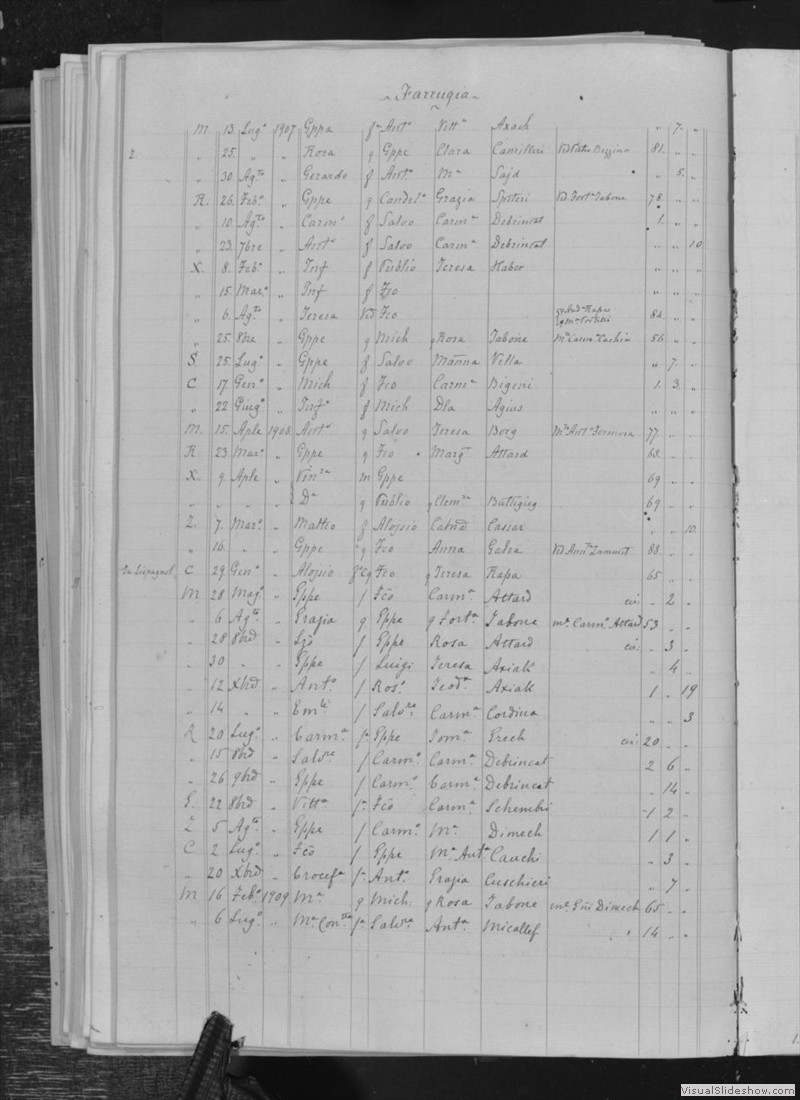 Farrugia
M. 13. Lugº 1907 Gppa fª Antº Vittª Axach " 7. "
2 " 25. " " Rosa q Gppe Clara Camilleri Vd Petro Bezzina 81. " "
" 30 Agto " Gerardo f Antº Mª Sajd " 5. "
R. 26. Febº " Gppe q Candelº Grazia Spiteri Vd Fortª Tabone 78. " "
" 10. Agto " Carmº f Salvo Carmª Debrincat 1. "
" 23. 7bre " Antº f Salvo Carmª Debrincat " " 10
X. 8. Febº " Inf f Publio Teresa Haber " " "
" 15 Marº " Inf f Fco
" 6. Agto " Teresa Vd Fco Rapa 84. " "
" 25. 8bre " Gppe q Mich q Rosa Tabone Mº Carmª Cachia 56 " "
S. 25. Lugº " Gppe f Salvo Mañna Vella " 7. "
C 17 Genº " Mich f Fco Carmª Bigeni 1. 3. "
" 22 Giugº " Infª f Mich Dla Agius " " "
M. 15. Aple 1908 Antº q Salvo Teresa Borg Mº Antª Formosa 77. " "
R 23 Marº " Gppe q Fco Margª Attard 68. " "
X. 9. Aple " Vinza m Gppe 69 " "
" " " " Dª q Publio q Clemª Buttigieg 69 " "
Z. 7. Marº " Matteo f Aloysio Catnd Cassar " " 10.
" 16. " " Gppe q Fco Anna Galea Vd Annª Zammit 88. " "
C 29 Genº " Aloysio fº cq Fco q Teresa Rapa 65 " "
M 28 Magº " Gppe f Fco Carmª Attard " 2 "
" 6 Agto " Grazia q Gppe q Fortª Tabone mº Carmº Attard 53 " "
" 28 8bre " Lzo f Gppe Rosa Attard " 3 "
" 30 " " Gppe f Luigi Teresa Axiak " 4 "
" 12 Xbre " Antº f Rosº Teodª Axiak 1 " 19
" 14 " " Emle f Salvre Carmª Cordina " " 3
R 20 Lugº " Carmª fª Gppe Tomª Grech 20 " "
" 15 8bre " Salvre f Carmº Carmª Debrincat 2 6 "
" 26 9bre " Gppe f Carmº Carmª Debrincat " 14 "
G. 22 8bre " Vittª fª Fco Carmª Schembri 1 2 "
Z 5 Agto " Gppe f Carmº Mª Dimech 1 1 "
C 2 Lugº " Fco f Gppe Mª Antª Cauchi " 3 "
" 20 Xbre " Crocefª fª Antº Grazia Cuschieri " 7 "
M 16 Febº 1909 Mª q Mich q Rosa Tabone mº Gio Dimech 65 " "
" 6 Lugº " Mª Conne fª Salvre Antª Micallef 14 " "
VisualSlideshow.com